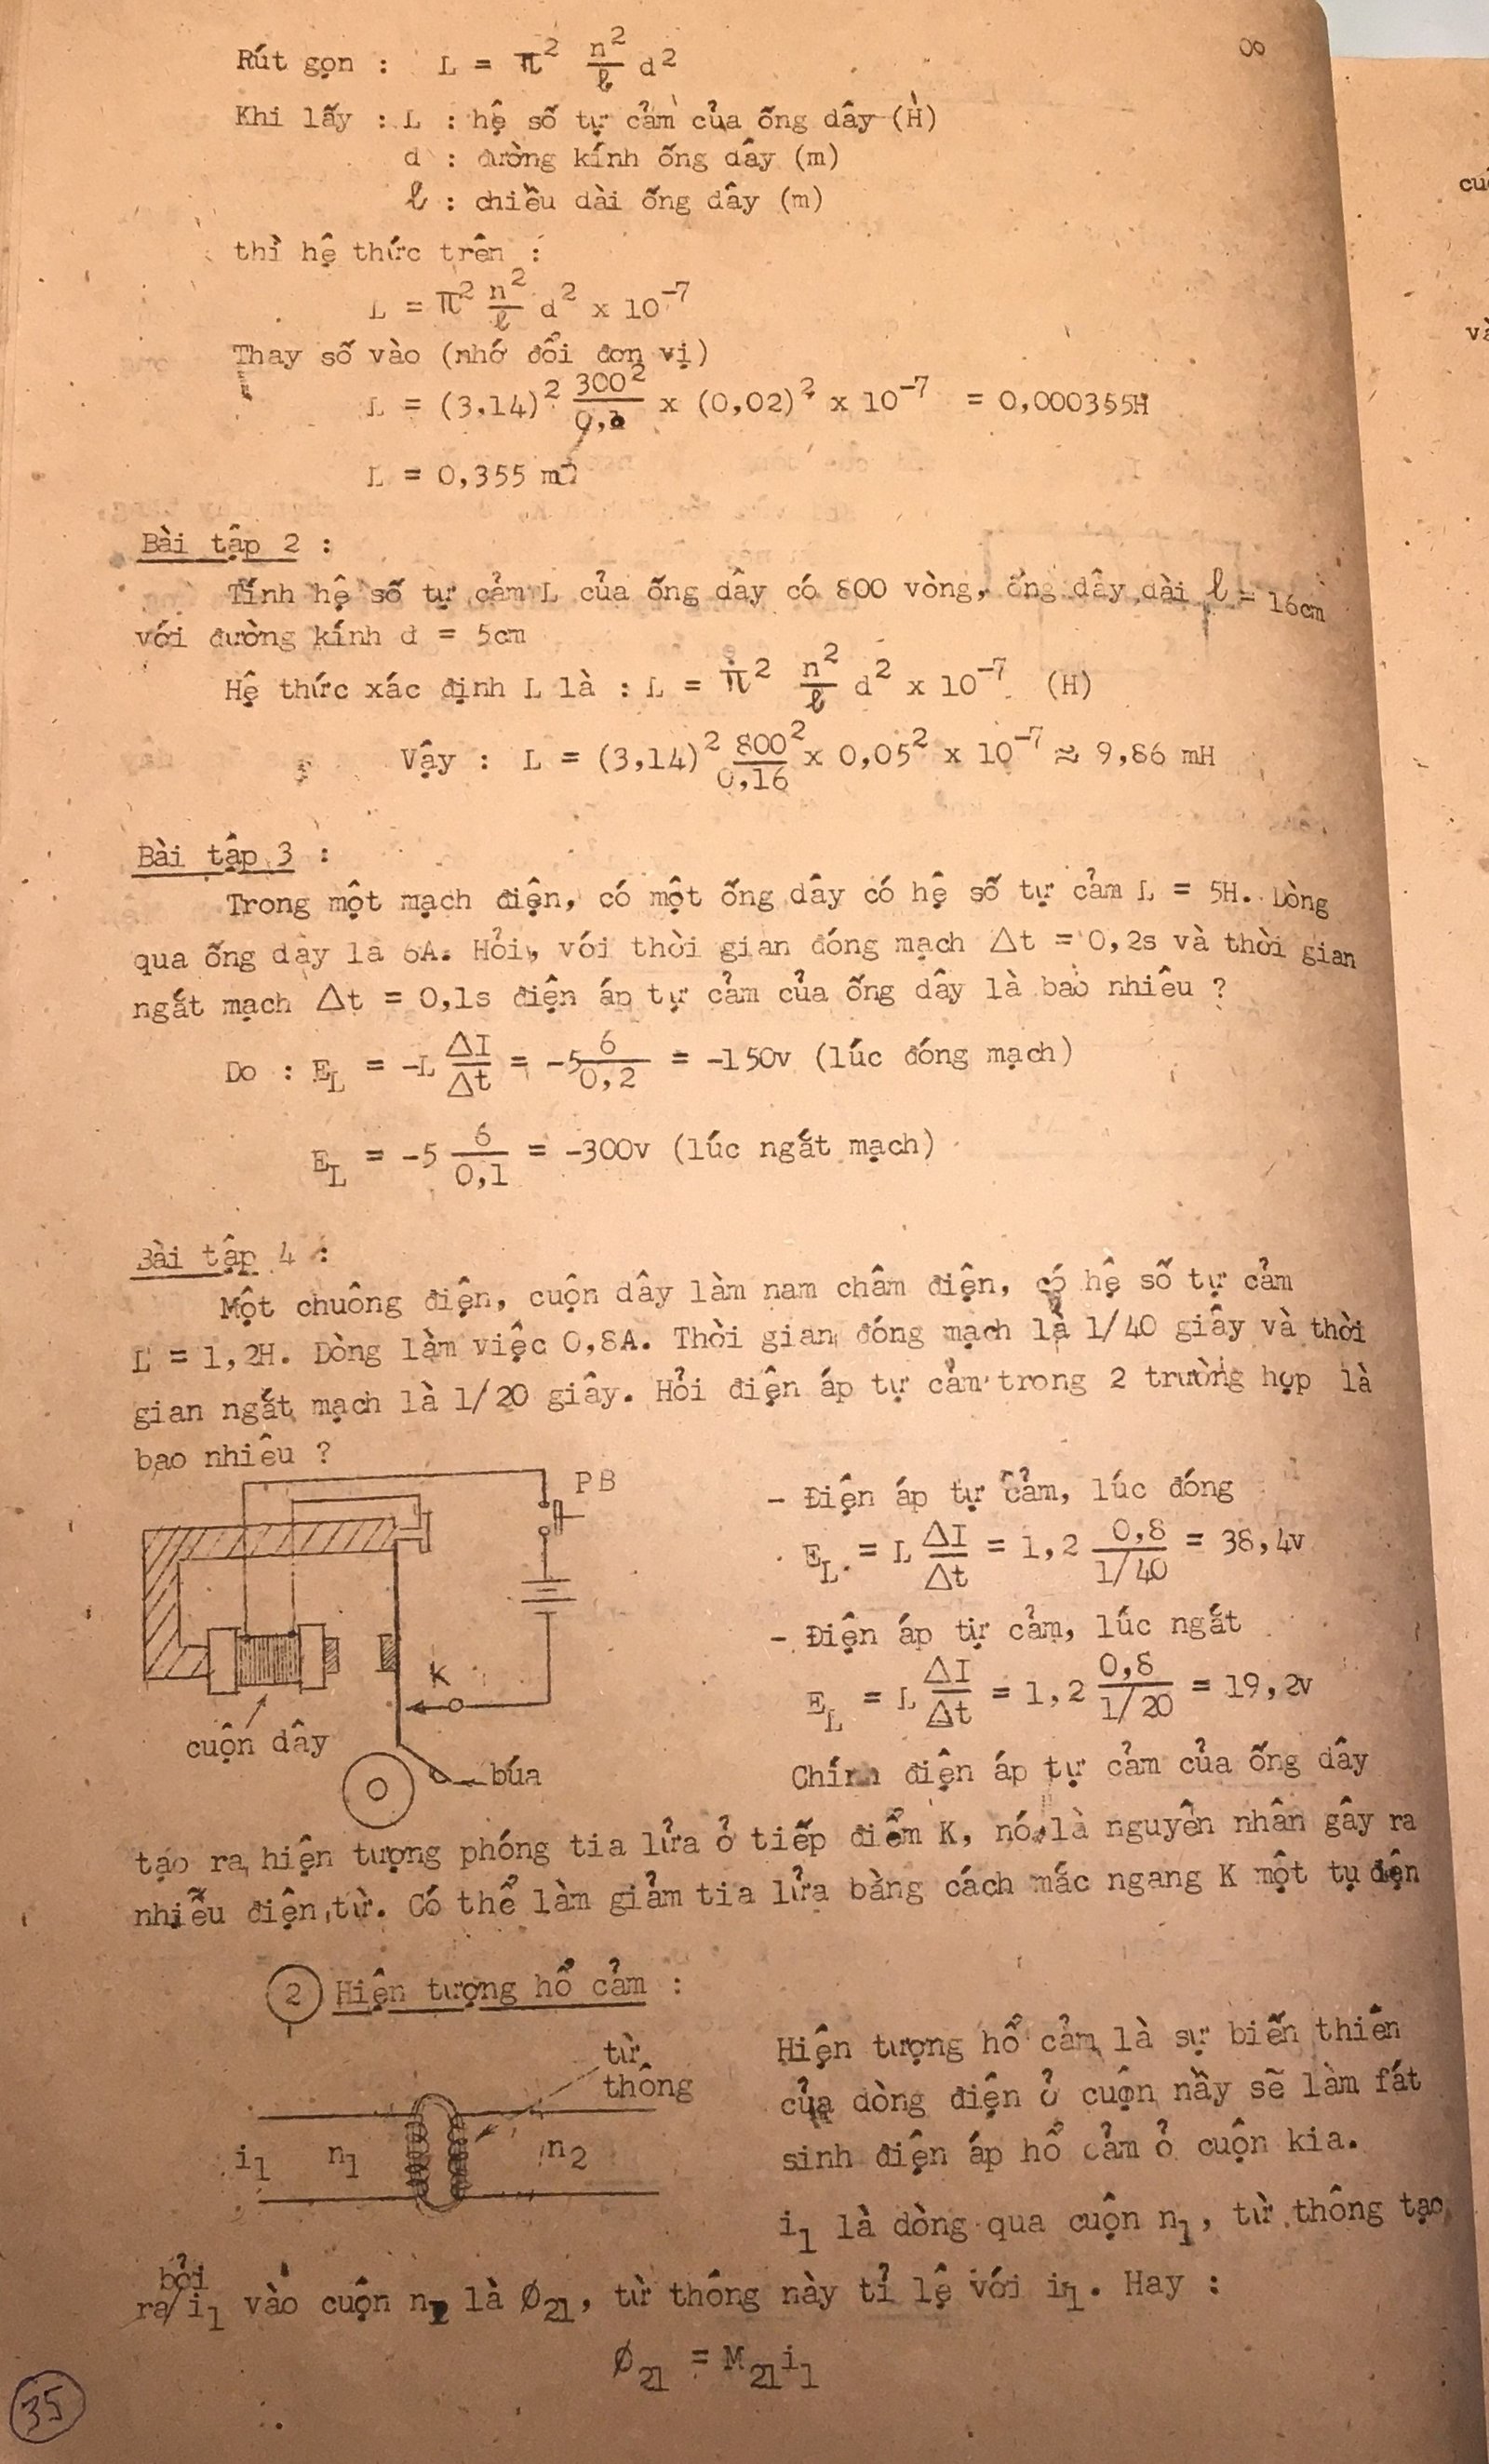 8
Rút gọn : L = π² n²/ℓ d²
Khi lấy : L : hệ số tự cảm của ống dây (H)
d : đường kính ống dây (m)
ℓ : chiều dài ống dây (m)
thì hệ thức trên :
L = π² n²/ℓ d² x 10⁻⁷
Thay số vào (nhớ đổi đơn vị)
L = (3.14)² 300²/0,1 x (0,02)² x 10⁻⁷ = 0,000355H
L = 0,355 m
Bài tập 2 :
Tính hệ số tự cảm L của ống dây có 800 vòng, ống dây dài ℓ = 16cm
với đường kính d = 5cm
Hệ thức xác định L là : L = π² n²/ℓ d² x 10⁻⁷ (H)
Vậy : L = (3,14)² 800²/0,16 x 0,05² x 10⁻⁷ ≈ 9,86 mH
Bài tập 3 :
Trong một mạch điện, có một ống dây có hệ số tự cảm L = 5H. Dòng
qua ống dây là 6A. Hỏi, với thời gian đóng mạch Δt = 0,2s và thời gian
ngắt mạch Δt = 0,1s điện áp tự cảm của ống dây là bao nhiêu ?
Do : E_L = -L ΔI/Δt = -5 6/0,2 = -150v (lúc đóng mạch)
E_L = -5 6/0,1 = -300v (lúc ngắt mạch)
Bài tập 4 :
Một chuông điện, cuộn dây làm nam châm điện, có hệ số tự cảm
L = 1,2H. Dòng làm việc 0,8A. Thời gian đóng mạch là 1/40 giây và thời
gian ngắt mạch là 1/20 giây. Hỏi điện áp tự cảm trong 2 trường hợp là
bao nhiêu ?
PB
K
cuộn dây
búa
- Điện áp tự cảm, lúc đóng
E_L = L ΔI/Δt = 1,2 0,8/1/40 = 38,4v
- Điện áp tự cảm, lúc ngắt
E_L = L ΔI/Δt = 1,2 0,8/1/20 = 19,2v
Chính điện áp tự cảm của ống dây
tạo ra hiện tượng phóng tia lửa ở tiếp điểm K, nó là nguyên nhân gây ra
nhiễu điện từ. Có thể làm giảm tia lửa bằng cách mắc ngang K một tụ điện
2 Hiện tượng hổ cảm :
từ
thông
i₁ n₁ n₂
Hiện tượng hổ cảm là sự biến thiên
của dòng điện ở cuộn nầy sẽ làm fát
sinh điện áp hổ cảm ở cuộn kia.
i₁ là dòng qua cuộn n₁, từ thông tạo
bởi
ra/i₁ vào cuộn n₂ là Ø₂₁, từ thông này tỉ lệ với i₁. Hay :
Ø₂₁ = M₂₁i₁
35